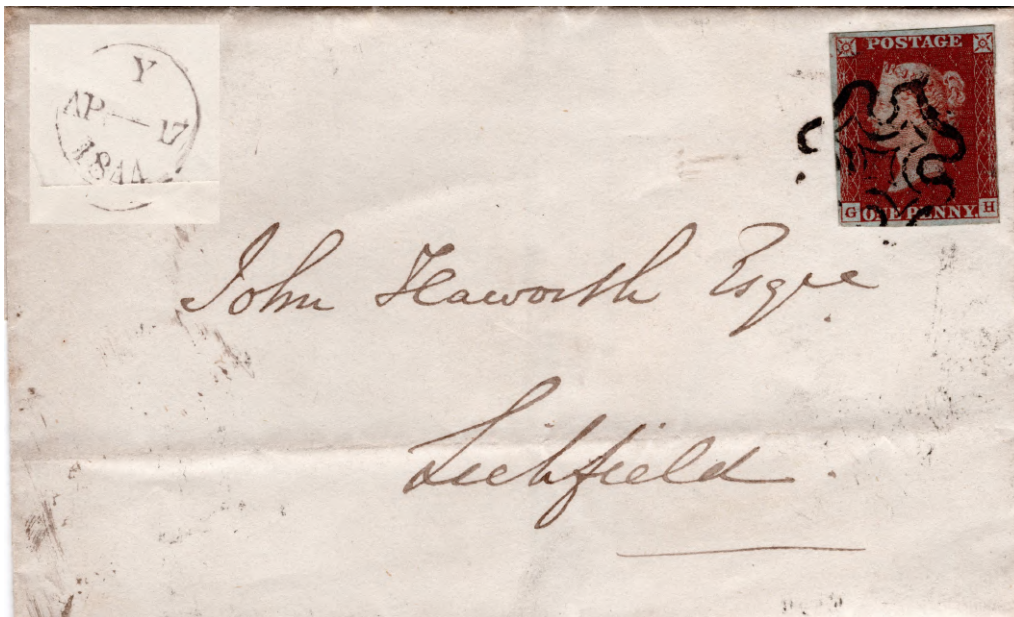 Y
AP 17
1844
POSTAGE
G ONE PENNY. H
John Haworth Esqre
Lichfield